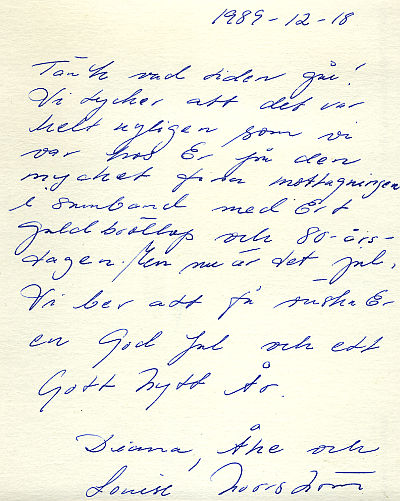 1989-12-18
Tänk vad tiden går!
Vi tycker att det var
helt nyligen som vi
var hos Er på den
mycket fina mottagningen
i samband med Ert
guldbröllop och 80-års-
dagen. Men nu är det jul.
Vi ber att få önska Er
en God Jul och ett
Gott Nytt År.
Diana, Åke och
Louise